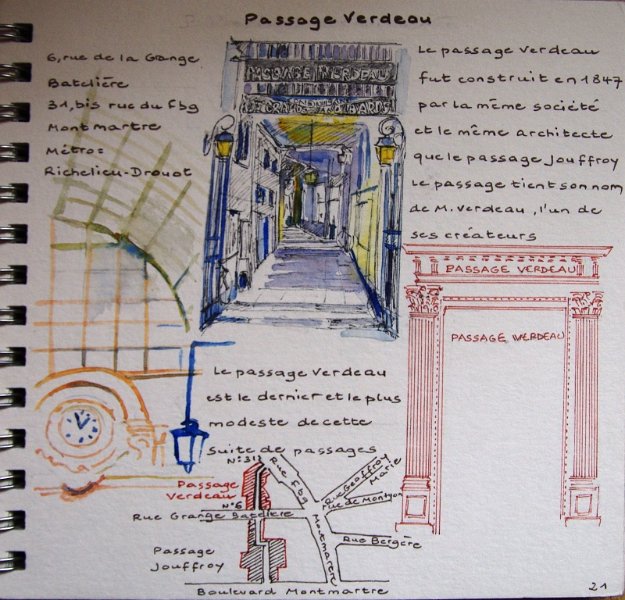 Passage Verdeau
6, rue de la Grange
Batelière
31, bis rue du Fbg
Montmartre
Métro:
Richelieu-Drouot
PASSAGE VERDEAU
Le passage Verdeau
fut construit en 1847
par la même société
et le même architecte
que le passage Jouffroy
Le passage tient son nom
de M. Verdeau, l'un de
ses créateurs
PASSAGE VERDEAU
PASSAGE VERDEAU
Le passage Verdeau
est le dernier et le plus
modeste de cette
suite de passages
N°31
Rue Fbg
Montmartre
Rue Geoffroy
Marie
rue de Montyon
Passage
Verdeau
N°6
Rue Grange Batelière
Rue Bergère
Passage
Jouffroy
Boulevard Montmartre
21